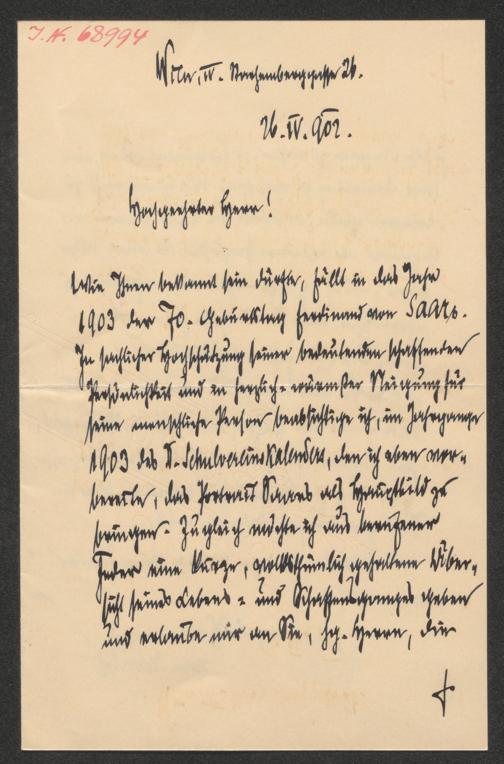 I.N. 68994
Wien, IV. Starhemberggasse 26.
26.IV.902.
Hochgeehrter Herr!
Wie Ihnen bekannt sein dürfte, fällt in das Jahr
1903 der 70. Geburtstag Ferdinand von Saars.
In sachlicher Hochschätzung seiner bedeutenden schaffenden
Persönlichkeit und in herzlich-wärmster Neigung für
seine menschliche Person beabsichtige ich, im Jahrgange
1903 des D. Schulvereinskalenders, den ich eben vor-
bereite, das Portrait Saars als Hauptbild zu
bringen. Zugleich möchte ich aus berufener
Feder eine kurze, volksthümlich gehaltene Über-
sicht seines Lebens- und Schaffensganges geben
und erlaube mir an Sie, hg. Herrn, die